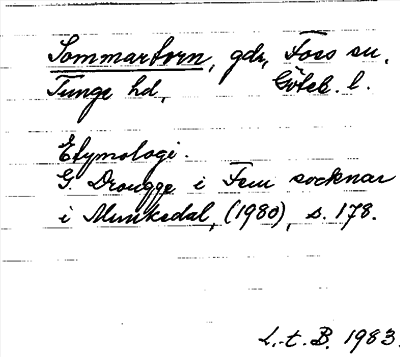 Sommartorn, gdr, Foss sn.
Tunge hd, Göteb. l.
Etymologi.
G. Drougge i Fem socknar
i Munkedal, (1980), s. 178.
L.t.B. 1983.